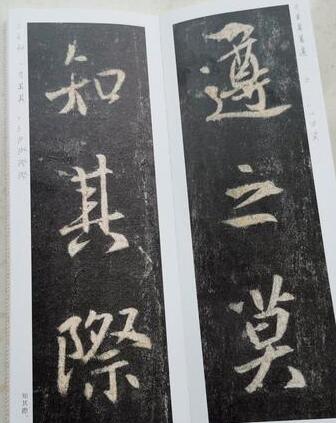 遵之莫
知其際
知其際。